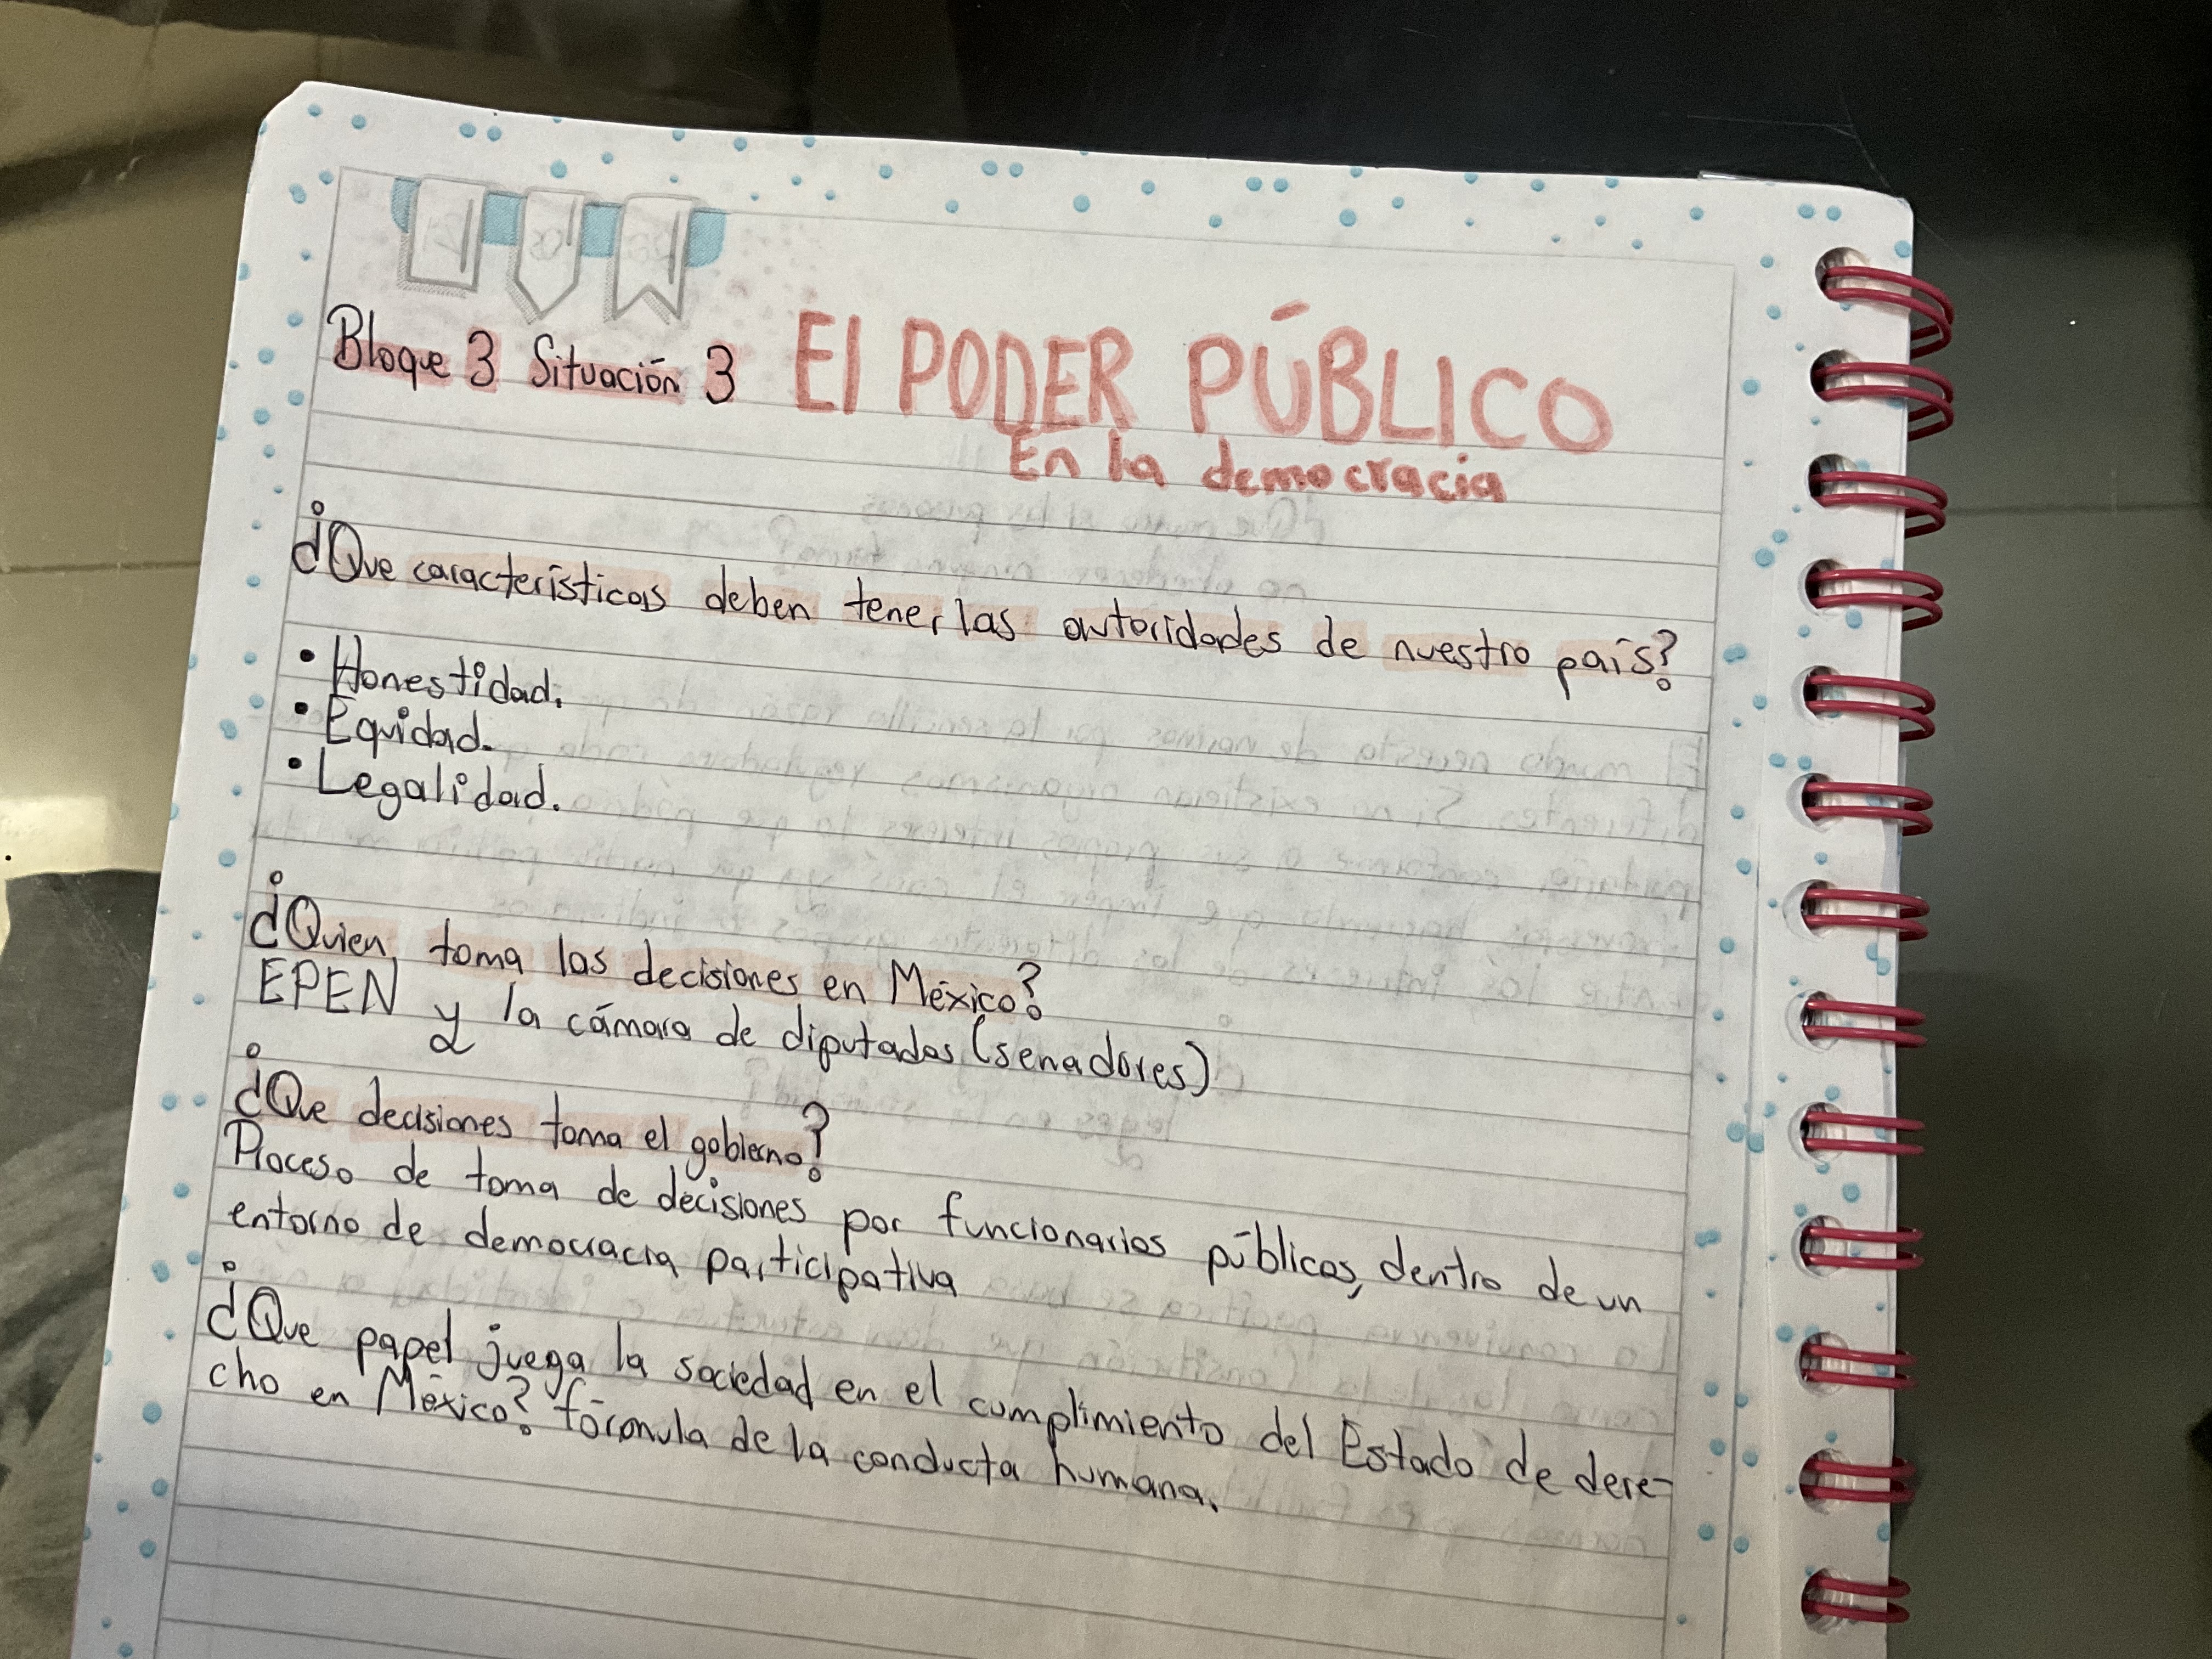 Bloque 3 Situación 3 El PODER PÚBLICO
En la democracia
¿Que características deben tener las autoridades de nuestro país?
• Honestidad.
• Equidad.
• Legalidad.
¿Quien toma las decisiones en México?
EPEN y la cámara de diputados (senadores)
¿Que decisiones toma el gobierno?
Proceso de toma de decisiones por funcionarios públicos, dentro de un
entorno de democracia participativa
¿Que papel juega la sociedad en el cumplimiento del Estado de dere-
cho en México? fórmula de la conducta humana.